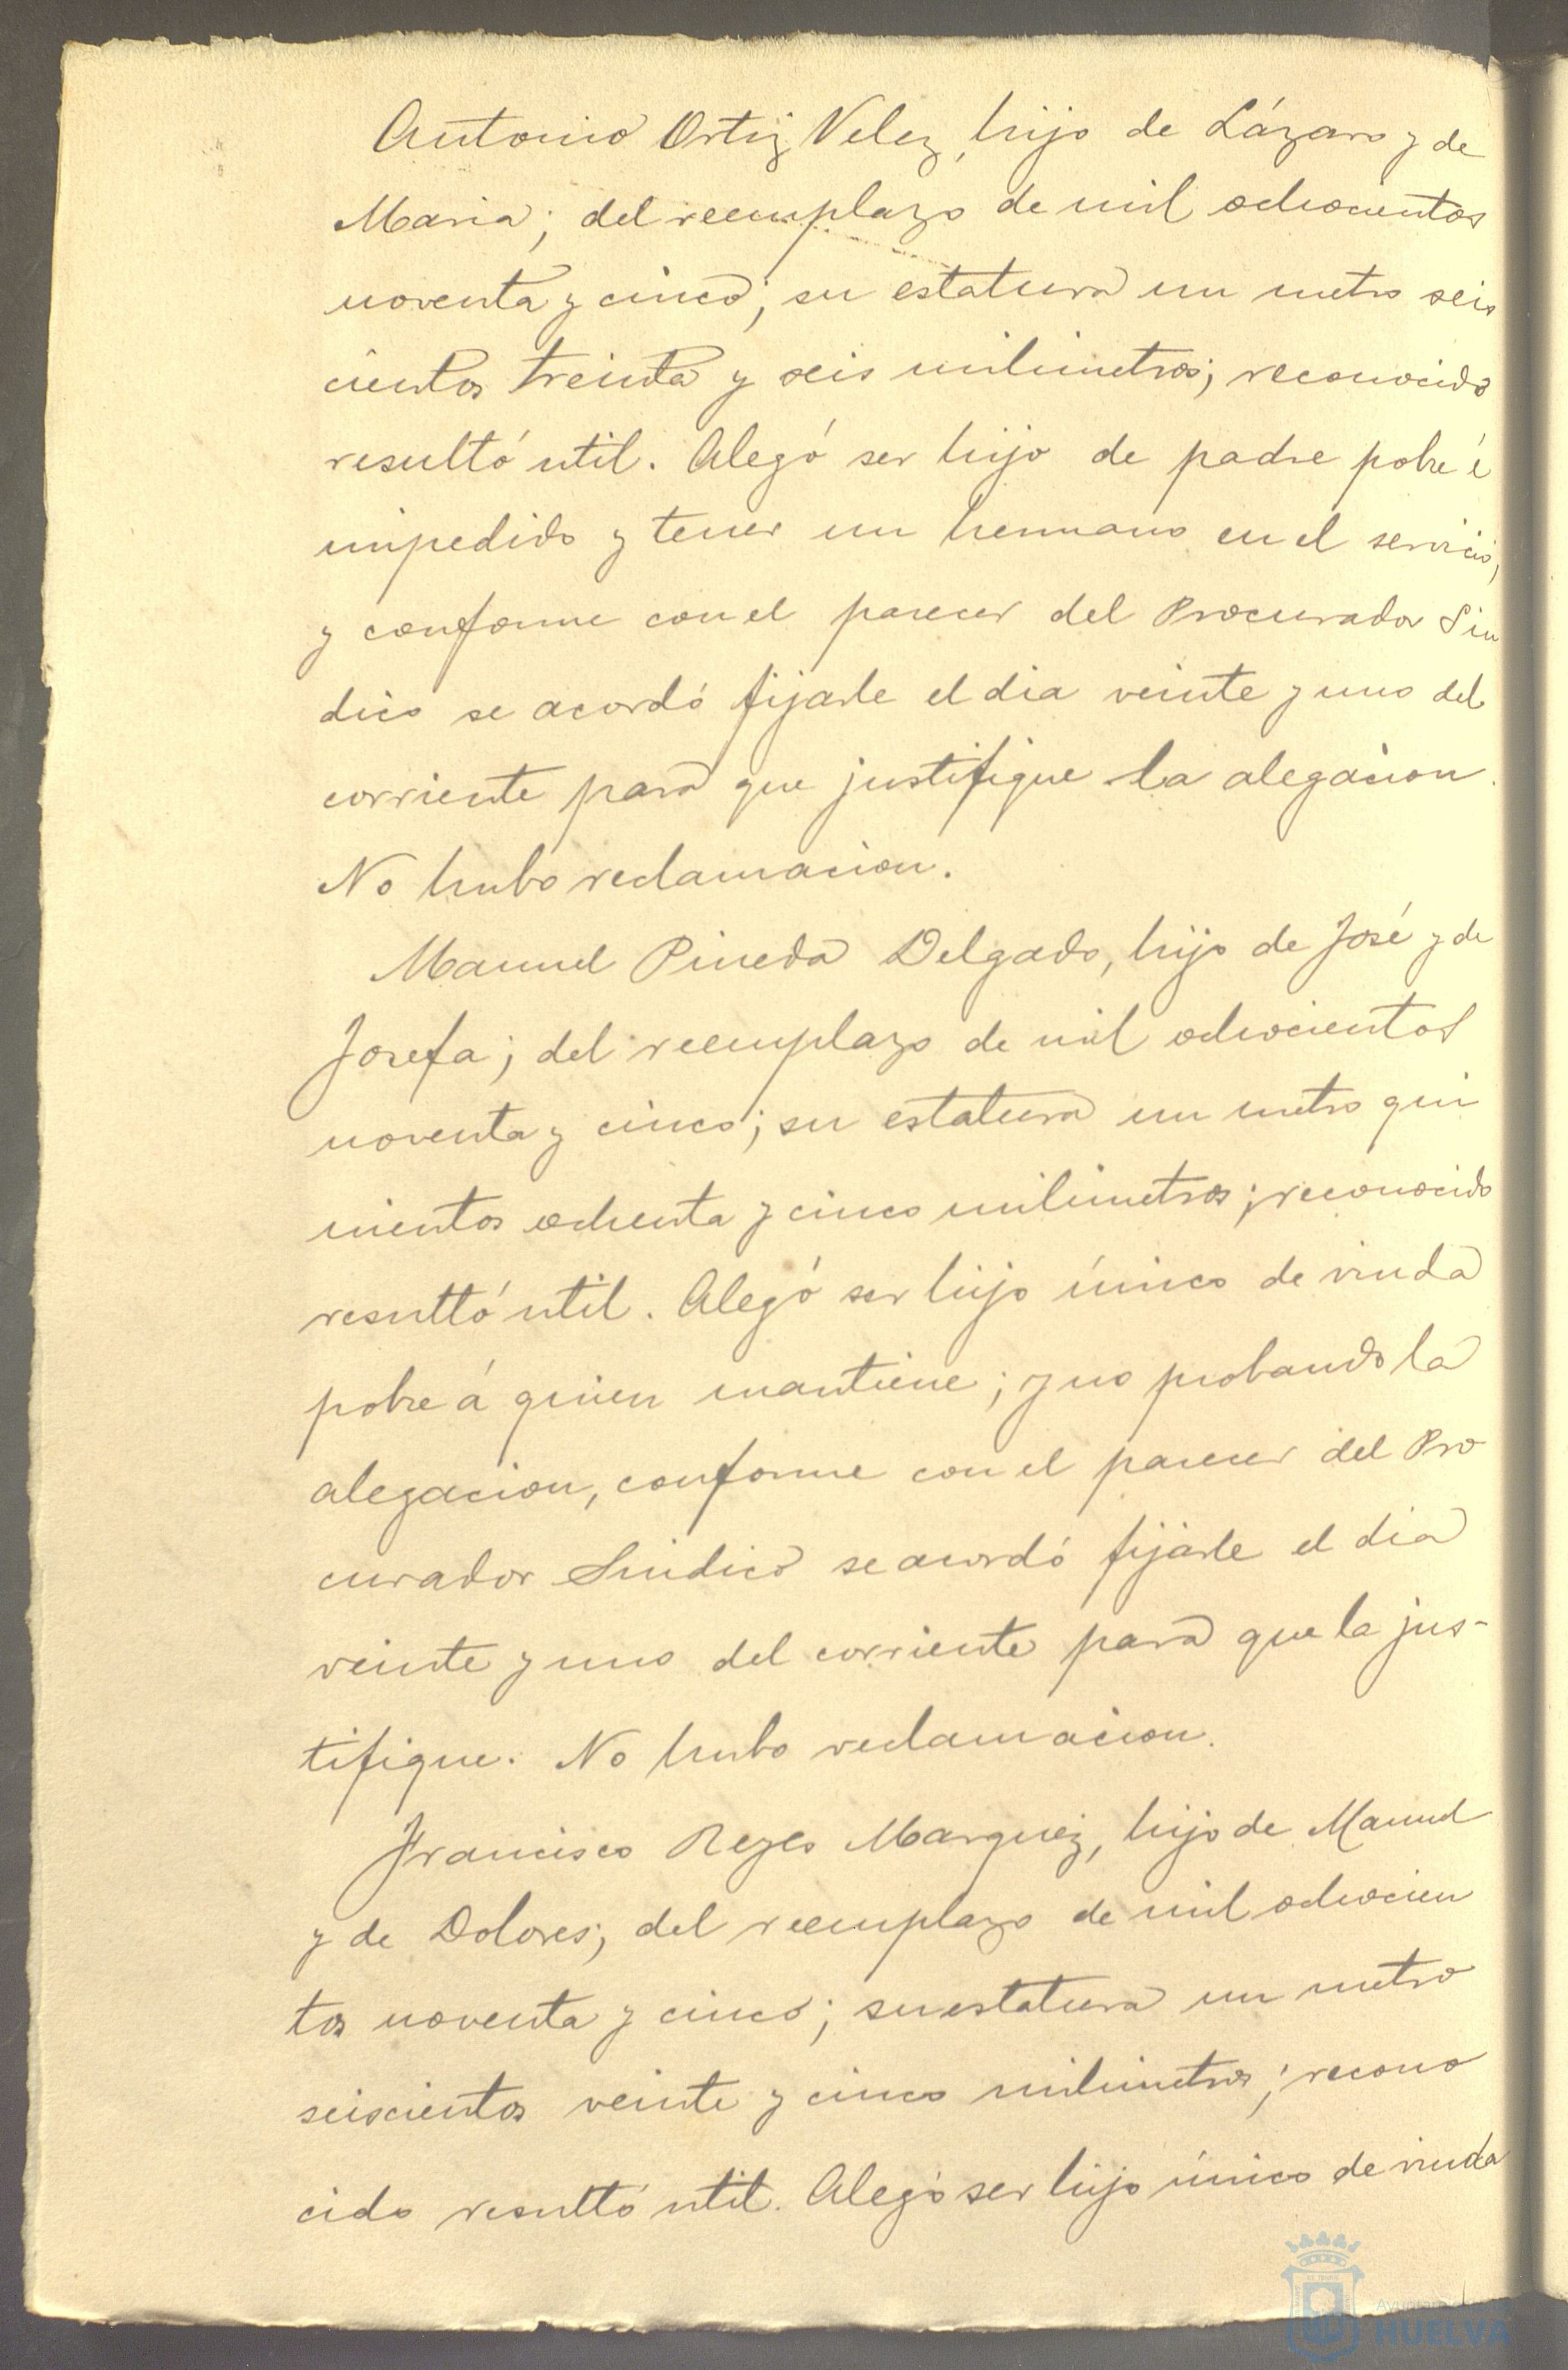 Antonio Ortiz Velez, hijo de Lázaro y de
Maria; del reemplazo de mil ochocientos
noventa y cinco; su estatura un metro seis
cientos treinta y seis milimetros; reconocido
resultó util. Alegó ser hijo de padre pobre é
impedido y tener un hermano en el servicio;
y conforme con el parecer del Procurador Sin
dico se acordó fijarle el dia veinte y uno del
corriente para que justifique la alegacion.
No hubo reclamacion.
Manuel Pineda Delgado, hijo de José y de
Josefa; del reemplazo de mil ochocientos
noventa y cinco; su estatura un metro qui
nientos ochenta y cinco milimetros; reconocido
resultó util. Alegó ser hijo único de viuda
pobre á quien mantiene; y no probando la
alegacion, conforme con el parecer del Pro
curador Sindico se acordó fijarle el dia
veinte y uno del corriente para que la jus-
tifique. No hubo reclamacion.
Francisco Reyes Marquez, hijo de Manuel
y de Dolores; del reemplazo de mil ochocien
tos noventa y cinco; su estatura un metro
seiscientos veinte y cinco milimetros; recono
cido resultó util. Alegó ser hijo único de viuda
HUELVA